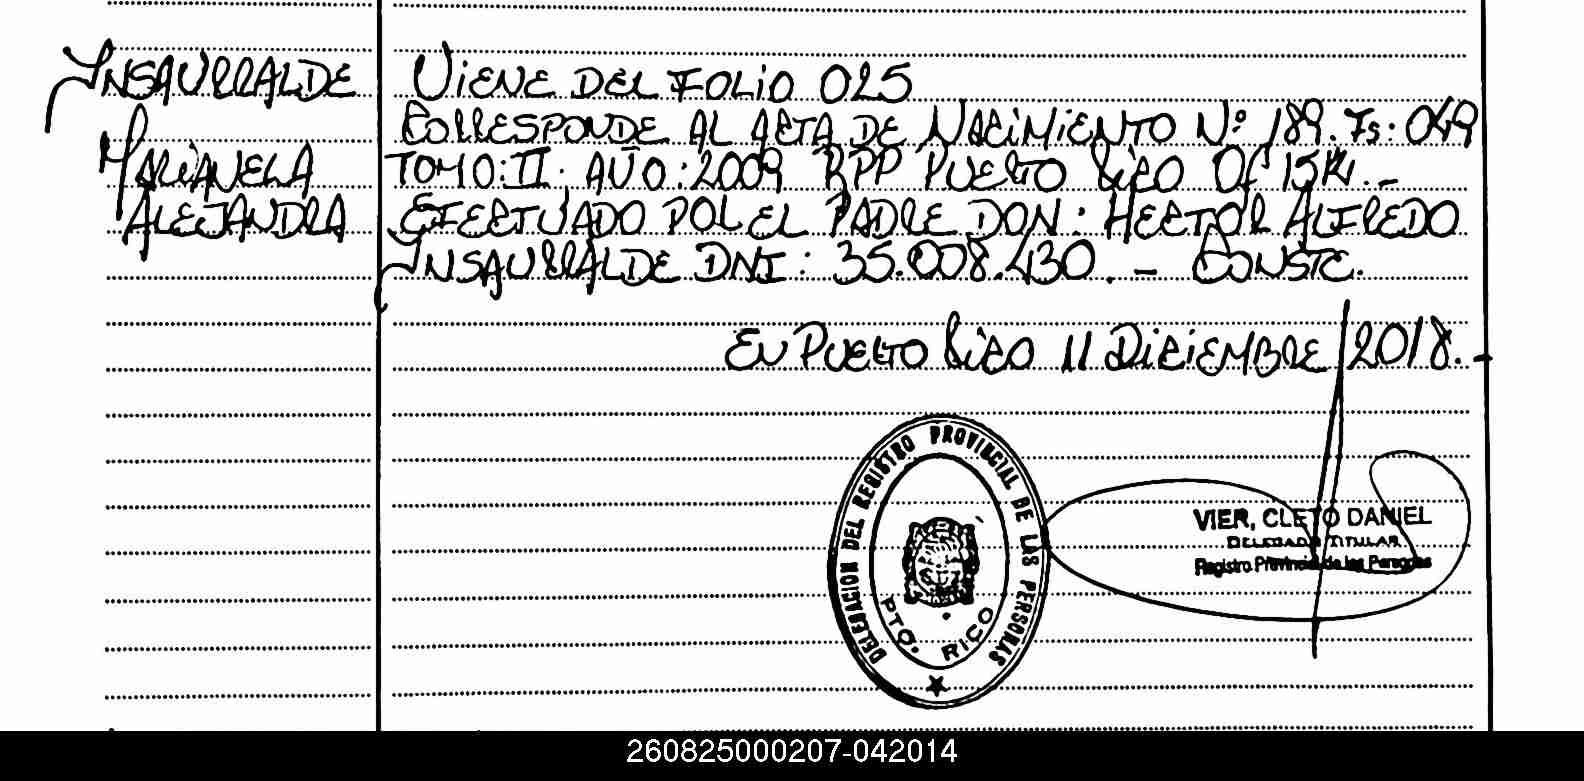 INSAURRALDE
MARIANELA
ALEJANDRA
VIENE DEL FOLIO 025
CORRESPONDE AL ACTA DE NACIMIENTO Nº 189. Fs: 049
TOMO: II. AÑO: 2009 RPP PUERTO RICO Of 15M. -
EFECTUADO POR EL PADRE DON: HECTOR ALFREDO
INSAURRALDE DNI: 35.008.430. - CONSTE.
EN PUERTO RICO 11 DICIEMBRE 2018. -
DELEGACION DEL REGISTRO PROVINCIAL DE LAS PERSONAS
PTO. RICO
VIER, CLETO DANIEL
DELEGADO TITULAR
Registro Provincial de las Personas
260825000207-042014